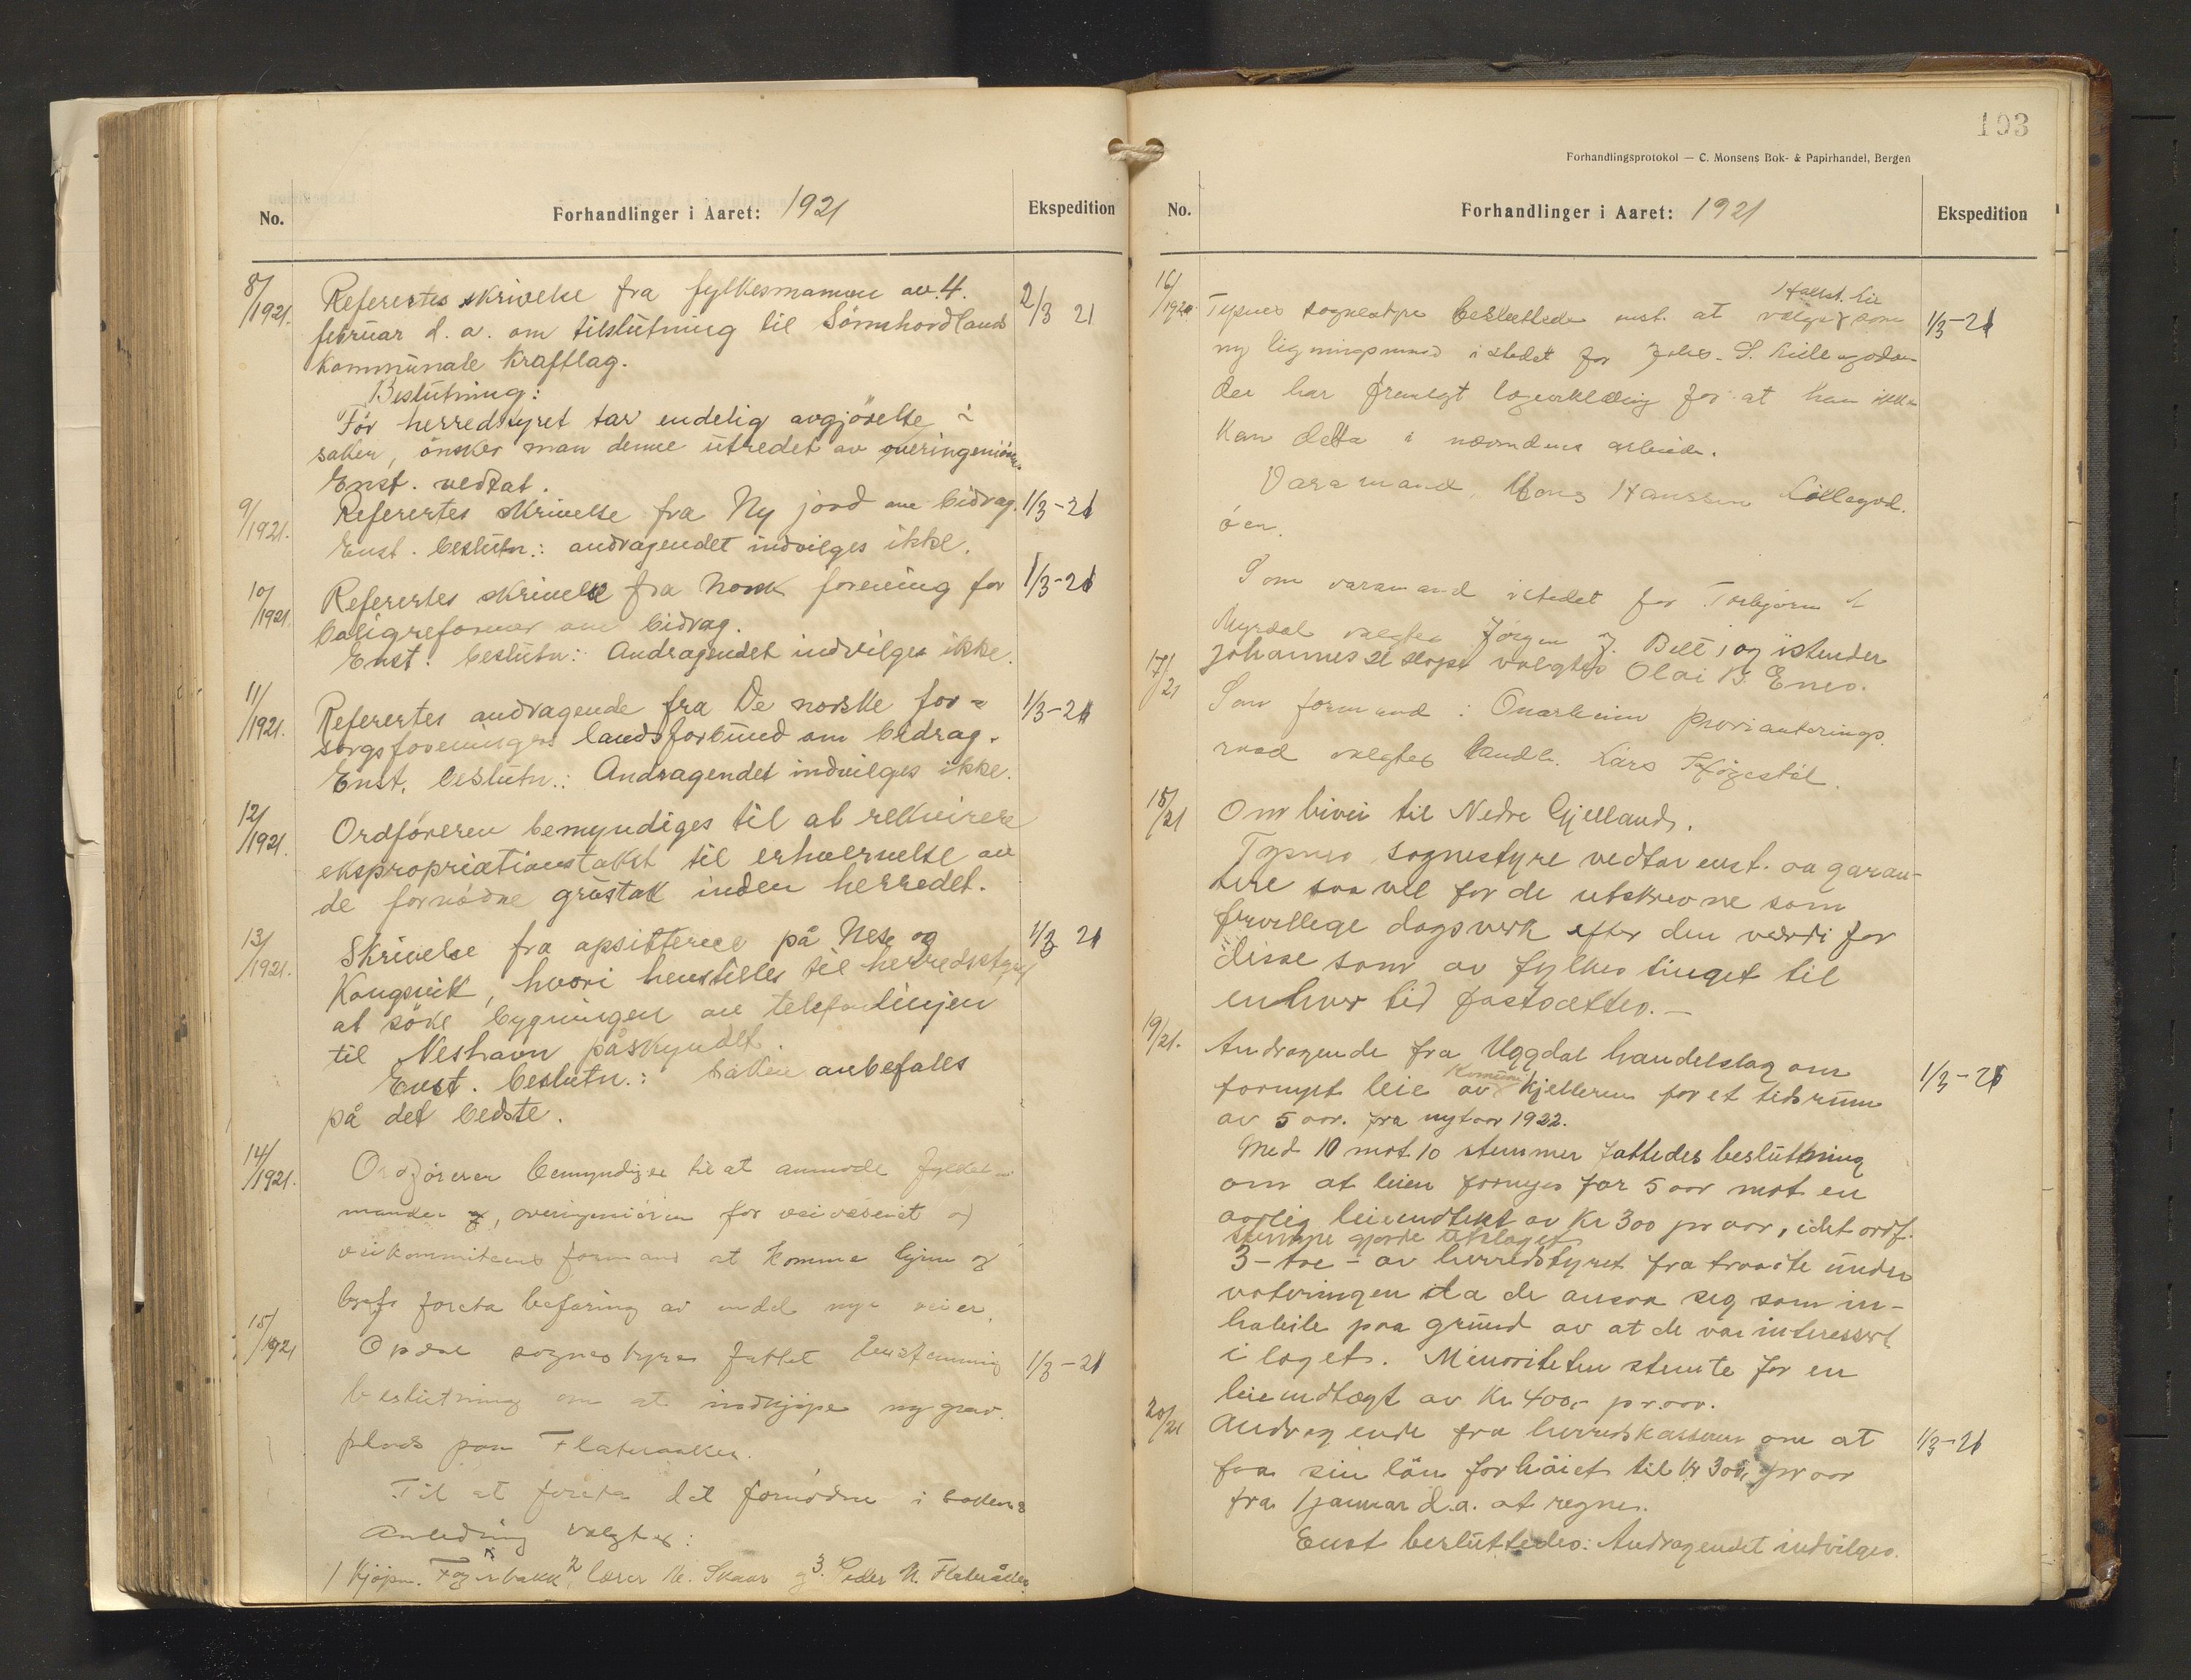 No.
Forhandlinger i Aaret: 1921
Ekspedition
8/1921.
Referertes skrivelse fra fylkesmannen av 4.
2/3 21
februar d. a. om tilslutning til Sömhordlands
kommunale kraftlag.
Beslutning:
För herredstyret tar endelig avgjörelse i
saken, önsker man denne utredet av overingeniören.
Enst. vedtat.
9/1921.
Referertes skrivelse fra Ny jord om bidrag.
1/3-21
Enst. beslutn.: andragendet indvilges ikke.
10/1921
Referertes skrivelse fra Norsk forening for
1/3-21
boligreformer om bidrag.
Enst. beslutn: Andragendet indvilges ikke.
11/1921.
Referertes andragende fra De norske for-
1/3-21
sorgsforeningers landsforbund om bidrag.
Enst. beslutn.: Andragendet indvilges ikke.
12/1921.
Ordföreren bemyndiges til at rekvirere
ekspropriationstakst til erhvervelse av
de fornødne grustak inden herredet.
13/1921.
Skrivelse fra opsittere på Nese og
1/3 21
Kongsvik, hvori henstilles til herredstyret
at söke bygningen av telefonlinjen
til Neshavn påskyndet.
Enst. beslutn.: Saken anbefales
på det bedste.
14/1921.
Ordförerer bemyndiges til at anmode fylkes-
manden og, overingeniören for veivæsenet og
veikommiteens formand at komme hjem og
foreta befaring av endel nye veier.
15/1921
Opdal sognestyre fattet Enstemmig
1/3-21
beslutning om at indkjöpe ny grav-
plads paa Flateraaker.
Til at foreta det fornödne i sakens
Anledning valgtes:
1 Kjöpm. Fagerbakk 2 lærer M. Skaar og 3. Peder N. Flateråker
103
Forhandlingsprotokol — C. Monsens Bok- & Papirhandel, Bergen
No.
Forhandlinger i Aaret: 1921
Ekspedition
16/1921
Hallst. Lie
Tysnes sognestyre besluttede enst. at vælge som
1/3-21
ny ligningsmand istedet for Johs. S. Lillegodøen
der har fremlagt lægeerklæring for at han ikke
kan delta i nævndens arbeide.
Varamand Mons Hanssen Lillegod-
öen.
Som varamand istedet for Torbjörn
Myrdal valgtes Jörgen J. Belt, og istenden
17/21
Johannes valgtes Olai B. Enes.
Som formand i Onarheim provianterings-
raad valgtes landh. Lars Høgestöl.
18/21
Om bivei til Nedre Gjelland.
Tysnes sognestyre vedtar enst. aa garan-
tere saavel for de utskrevne som
frivellege dagsverk efter den værdi for
disse som av fylkestinget til
enhver tid fastsættes.—
19/21.
Andragende fra Uggdal handelslag om
1/3-21
fornyet leie av Komune kjelleren for et tidsrum
av 5 aar. fra nytaar 1922.
Med 10 mot 10 stemmer fattedes beslutning
om at leien fornyes for 5 aar mot en
aarlig leieindtekt av Kr 300 pr aar, idet ordf.
stemme gjorde utslaget
3-tre- av herredstyret fratraadte under
voteringen da de ansaa seg som in-
habile paa grund av at de var interessert
i laget. Minoriteten stemte for en
leieindtægt av Kr. 400,- pr. aar.
20/21
Andragende fra herredskasseren om at
1/3-21
faa sin lön forhöiet til Kr 300, pr aar
fra 1 januar d.a. at regne.
Enst besluttedes: Andragendet indvilges.